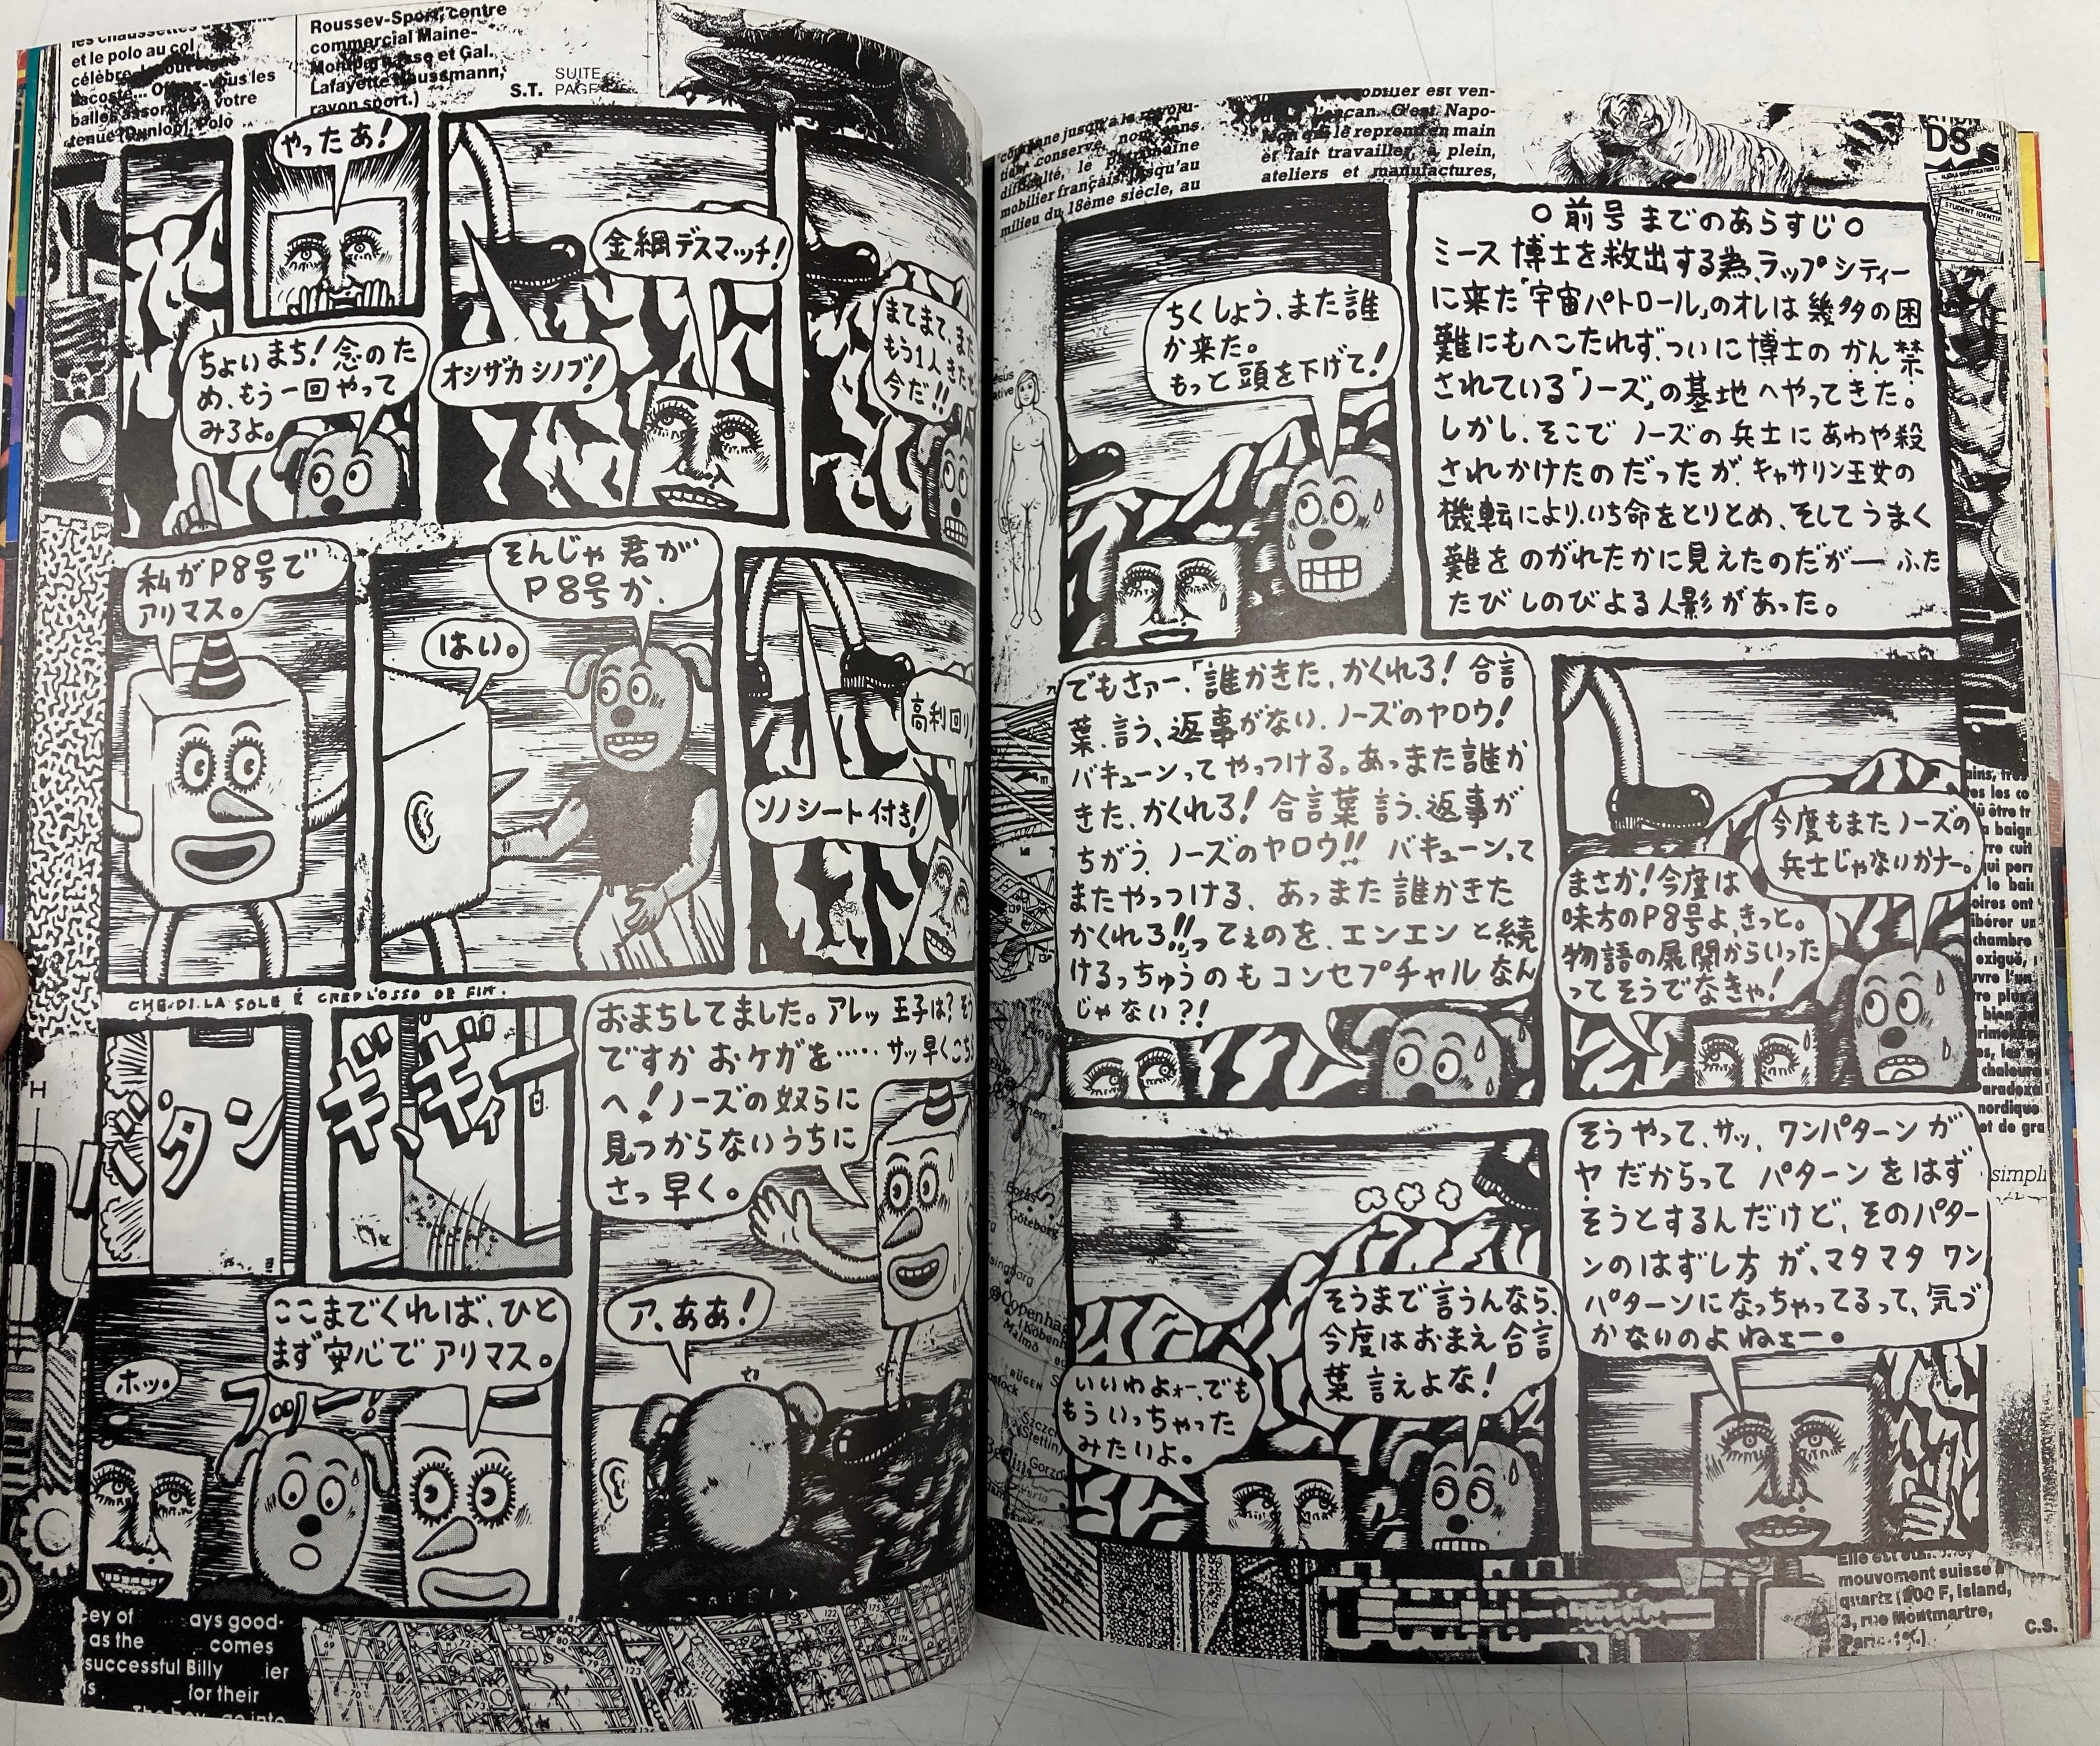 ○前号までのあらすじ○
ミース博士を救出する為、ラップシティー
に来た「宇宙パトロール」のオレは幾多の困
難にもへこたれず、ついに博士のかん禁
されている「ノーズ」の基地へやってきた。
しかし、そこでノーズの兵士にあわや殺
されかけたのだったが、キャサリン王女の
機転により、いち命をとりとめ、そしてうまく
難をのがれたかに見えたのだが―ふた
たびしのびよる人影があった。
ちくしょう、また誰
か来た。
もっと頭を下げて!
今度もまたノーズの
兵士じゃないかナー。
まさか!今度は
味方のP8号よ、きっと。
物語の展開からいった
ってそうでなきゃ!
でもさァー、「誰かきた、かくれろ!合言
葉、言う、返事がない、ノーズのヤロウ!
バキューンってやっつける。あっまた誰か
きた、かくれろ!合言葉言う、返事が
ちがう、ノーズのヤロウ!!バキューンって
またやっつける、あっまた誰かきた
かくれろ!!ってぇのを、エンエンと続
けるっちゅうのもコンセプチャルなん
じゃない?!
そうやって、サッ、ワンパターンが
ヤだからってパターンをはず
そうとするんだけど、そのパター
ンのはずし方が、マタマタワン
パターンになっちゃってるって、気づ
かないのよねェー。
そうまで言うんなら、
今度はおまえ合言
葉言えよな!
いいわよォー、でも
もういっちゃった
みたいよ。
まてまて、また
もう1人きたぞ
今だ!!
金網デスマッチ!
オシザカシノブ!
やったあ!
ちょいまち!念のた
め、もう一回やって
みろよ。
高利回り!
ソノシート付き!
そんじゃ君が
P8号か、
はい。
私がP8号で
アリマス。
CHE DI LA SOLE È CREDL'OSSO DE FIM.
おまちしてました。アレッ王子は?そう
ですかおケガを……サッ早くこちら
へ!ノーズの奴らに
見つからないうちに
さっ早く。
ア、ああ!
ギ、ギィー
バタン
ここまでくれば、ひと
まず安心でアリマス。
フゥー!
ホッ。
et le polo au col
tenue (Dunlop). Polo
Roussev-Sport, centre
commercial Maine-
rayon sport.)
S.T.
SUITE
PAGE
mobilier français jusqu'au
milieu du 18ème siècle, au
et fait travailler, à plein,
ateliers et manufactures,
DS
STUDENT IDENTIF
simpli
Copenhag
Malmö
Göteborg
RÜGEN
(Stettin)
Berlin
mouvement suisse à
quartz (200 F, Island,
3, rue Montmartre,
C.S.
H
ays good-
as the
comes
successful Billy
for their